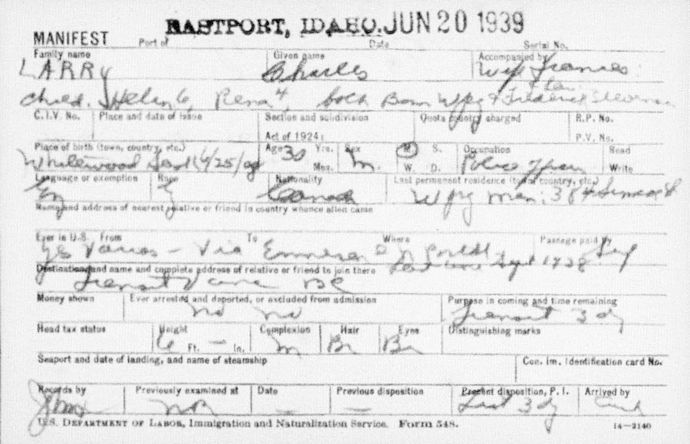 EASTPORT, IDAHO. JUN 20 1939
MANIFEST Port of Date Serial No.
Family name Given name Accompanied by
LARRY Charles Wife Frances
child. Helen 6, Rena 4, both Born Wpg + Frederick
C.I.V. No. Place and date of issue Section and subdivision Quota country charged R.P. No.
Act of 1924: P.V. No.
Place of birth (town, country, etc.) Age Yrs. Sex M. S. Occupation Read
30 Mos. m. W. D. Write
Language or exemption Race Nationality Last permanent residence (town, country, etc.)
En Canada Wpg Man.
Name and address of nearest relative or friend in country whence alien came
Ever in U.S. From To Where Passage paid by
yes Various - Via Self
Last time Sept 1938
Destination, and name and complete address of relative or friend to join there
Transit Vanc BC
Money shown Ever arrested and deported, or excluded from admission Purpose in coming and time remaining
no no Transit 3 dy
Head tax status Height Complexion Hair Eyes Distinguishing marks
6 Ft. — In. m Br Br
Seaport and date of landing, and name of steamship Con. Im. Identification card No.
Records by Previously examined at Date Previous disposition Present disposition, P. I. Arrived by
no — — 3 dy
U.S. DEPARTMENT OF LABOR, Immigration and Naturalization Service. Form 548. 14—2140